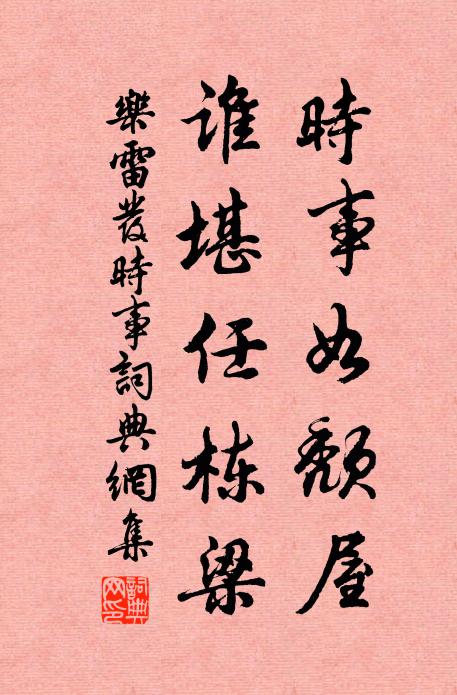 時事如頹屋
誰堪任棟梁
樂雷發時事詞典網集
詞典
网印